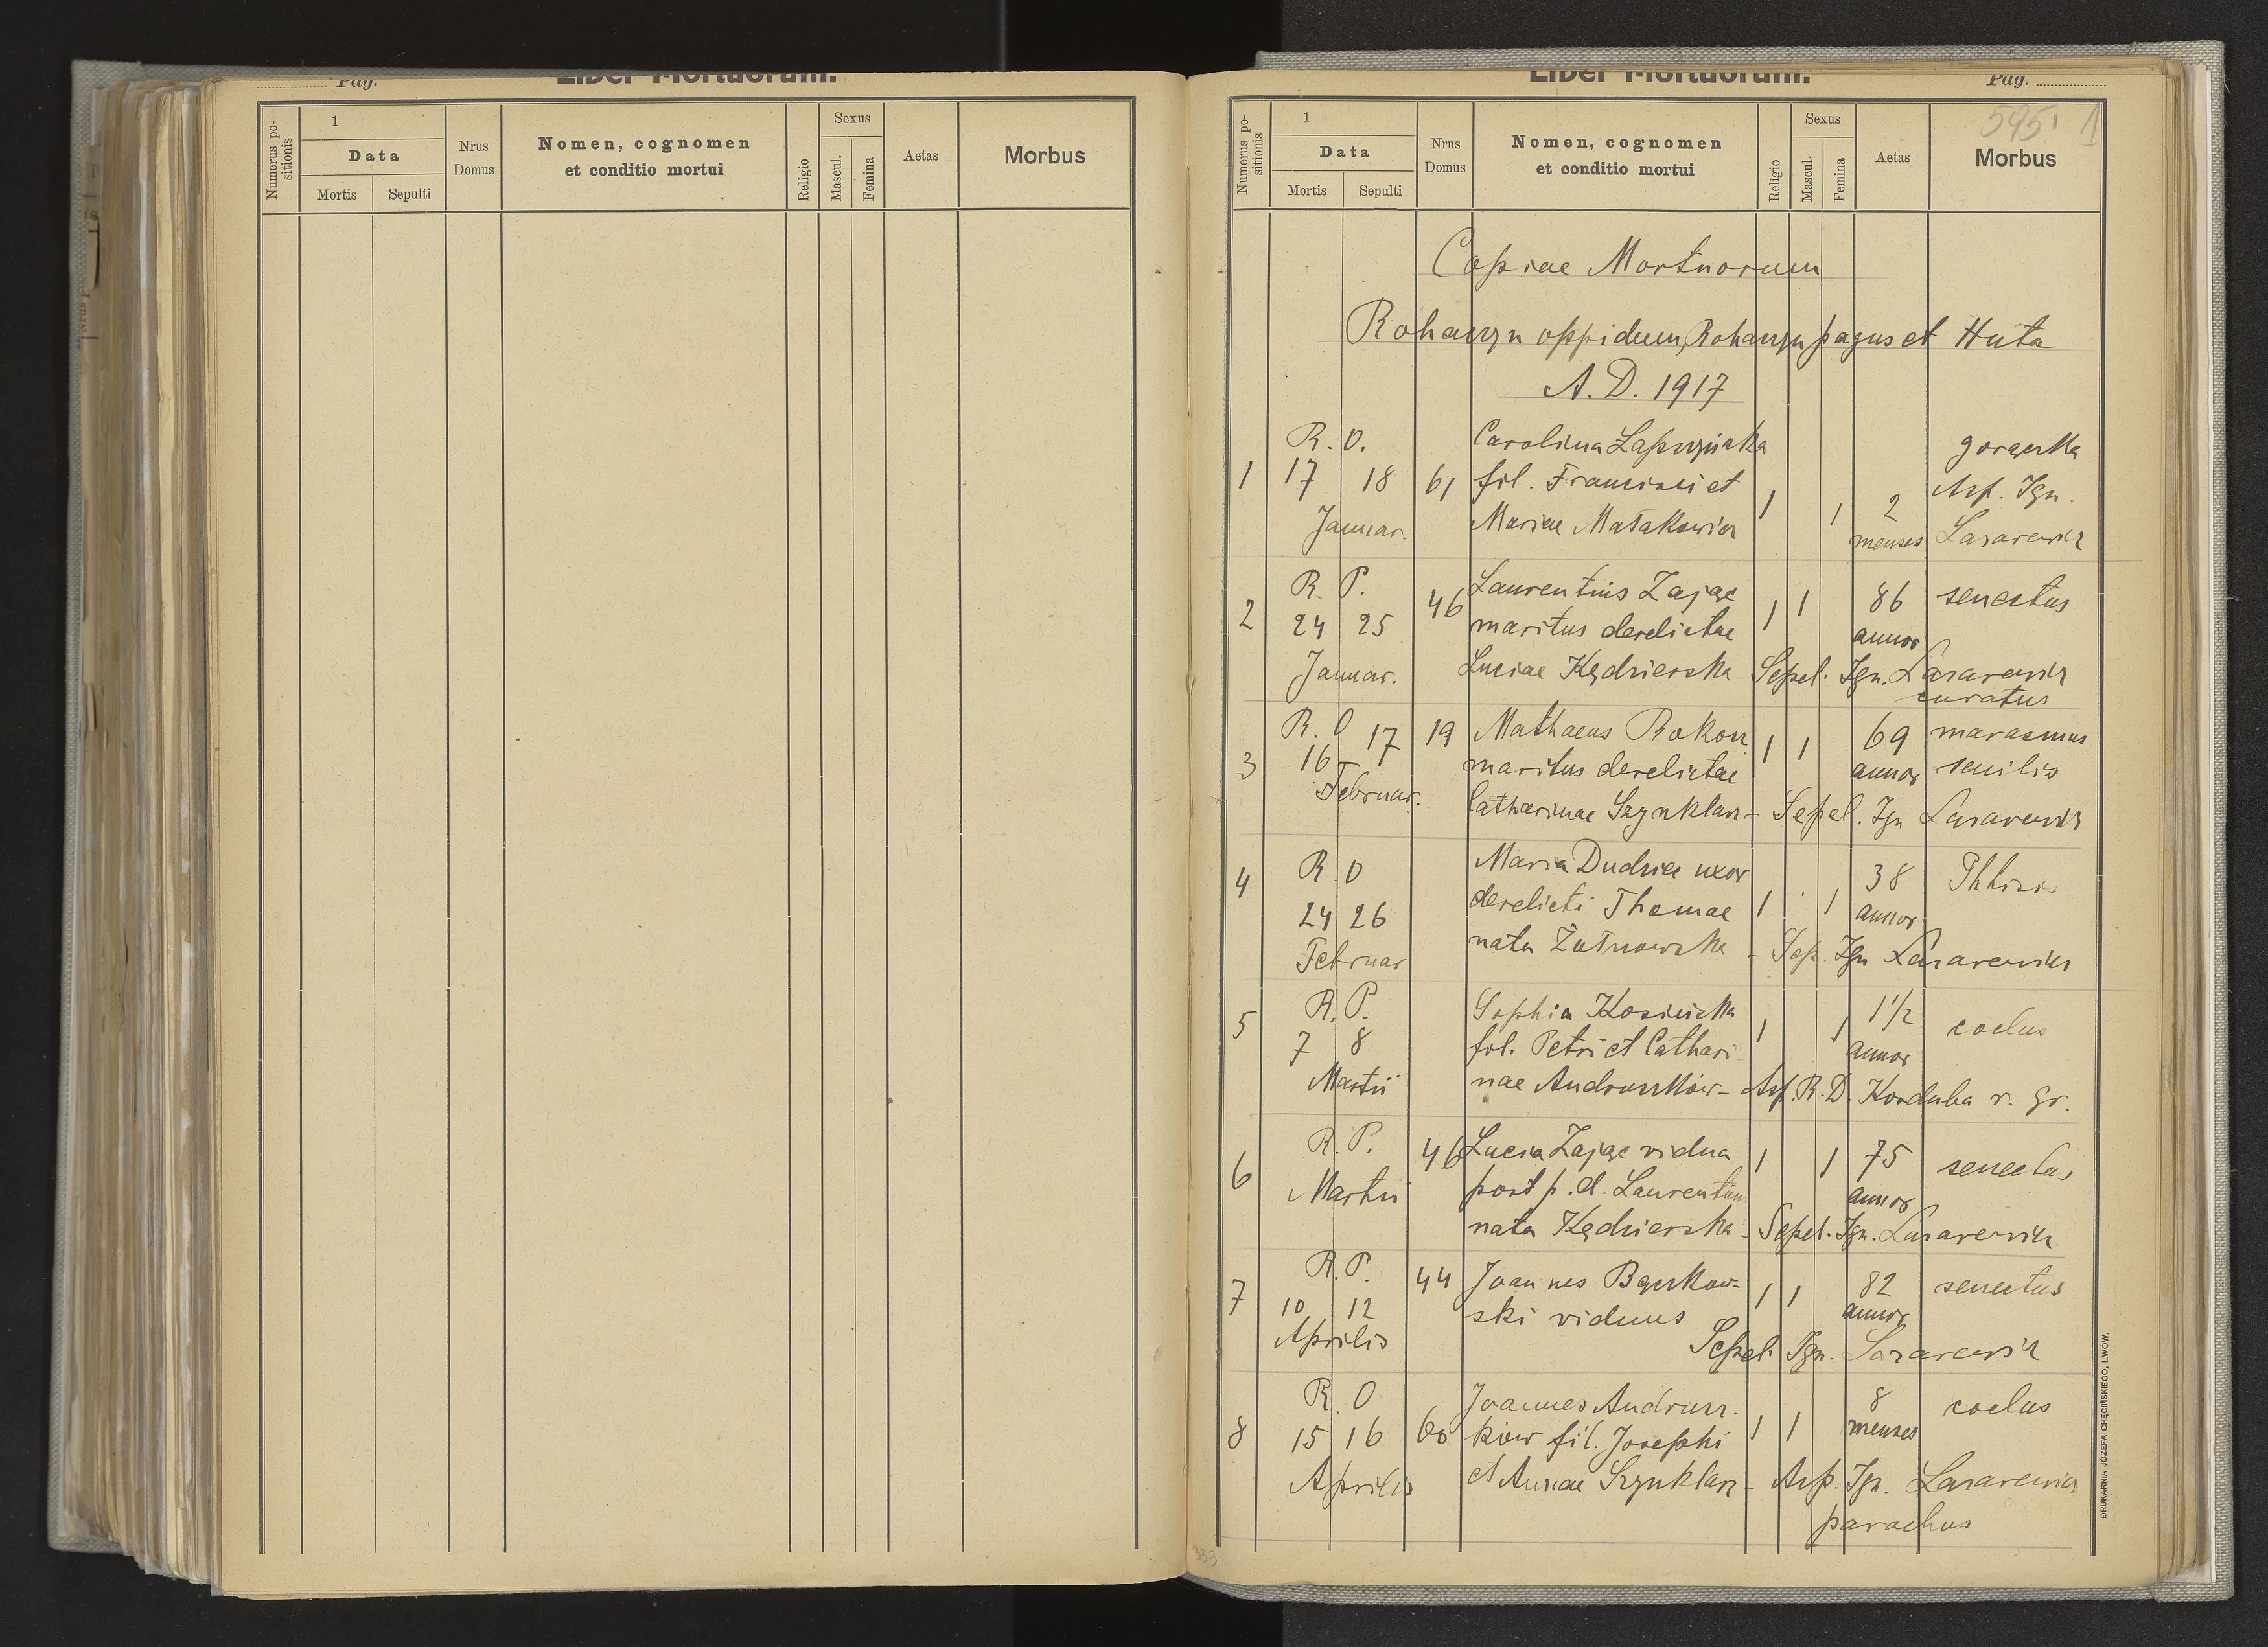 Pag.
Liber Mortuorum.
Numerus positionis
1
Data
Mortis
Sepulti
Nrus Domus
Nomen, cognomen
et conditio mortui
Religio
Sexus
Mascul.
Femina
Aetas
Morbus
Liber Mortuorum.
Pag.
595 1
Numerus positionis
1
Data
Mortis
Sepulti
Nrus Domus
Nomen, cognomen
et conditio mortui
Religio
Sexus
Mascul.
Femina
Aetas
Morbus
Copiae Mortuorum
Rohaczyn oppidum, Rohaczyn pagus et Huta
A. D. 1917
R. O. Carolina gorączka
1 17 18 61 fil. Francisci et Asp. Ign.
Januar. Mariae Małakowicz 1 1 2 menses Lazarewicz
R. P. Laurentius Zając 86 senectus
2 24 25 46 maritus derelictae 1 1 annor
Januar. Luciae Kędzierska Sepel. Ign. Lazarewicz
curatus
R. O 17 19 Mathaeus Rokosz 1 1 69 marasmus
3 16 maritus derelictae annor senilis
Februar. Catharinae Szynklarz - Sepel. Ign Lazarewicz
4 R. O Maria Dudzicz uxor 38 Phtisis
24 26 derelicti Thomae 1 1 annor
Februar nata Żołnowska - Sep. Ign Lazarewicz
R. P. Sophia Kosińska 1 1/2
5 7 8 fil. Petri et Cathari- 1 1 annor coclus
Martii nae Andruszków - Asp. R. D. Korduba r. gr.
R. P. 46 Lucia Zając vidua 1 1 75 senectus
6 Martii post p. d. Laurentium annor
nata Kędzierska - Sepel. Ign. Lazarewicz
R. P. 44 Joannes Bączkow- 82 senectus
7 10 12 ski viduus 1 1 annor
Aprilis Sepel. Ign. Lazarewicz
R. O Joannes Andrusz- 8 coclus
8 15 16 60 ków fil. Josephi 1 1 menses
Aprilis et Annae Szynklarz - Asp. Ign. Lazarewicz
parochus
333
DRUKARNIA JÓZEFA CHĘCIŃSKIEGO, LWÓW.